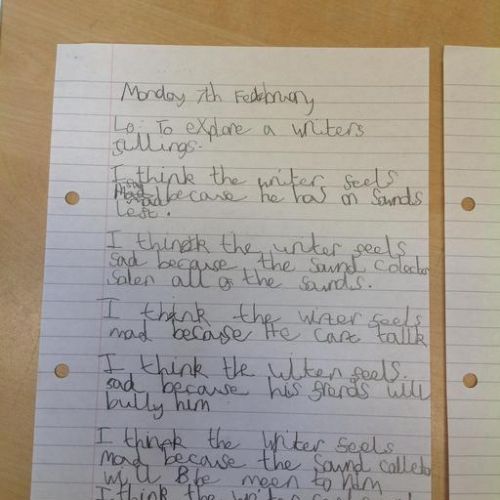 Monday 7th Fedebruary
Lo: To explore a writers
fillings.
I think the writer feels
sad because he has on sounds
lest.
I thinck the writer feels
sad because the sound colector
solen all of the sounds.
I think the writer feels
mad because He cant tallk
I think the writer feels.
sad because his friends will
bully him
I think the writer feels
mad because the sound callecto
will Bbe meen to him
I think the writer feels